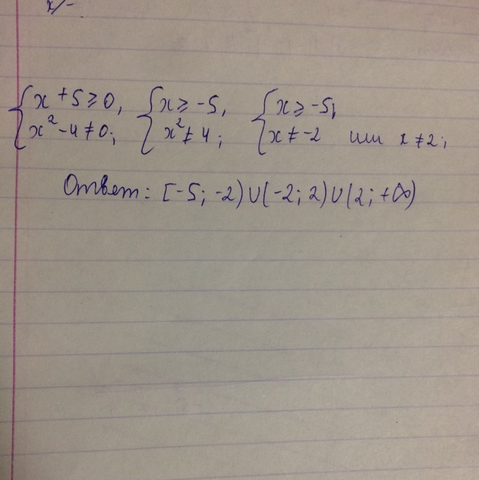 x + 5 ≥ 0, x ≥ -5, x ≥ -5,
x² - 4 ≠ 0; x² ≠ 4; x ≠ -2 или x ≠ 2;
Ответ: [-5; -2)∪(-2; 2)∪(2; +∞)